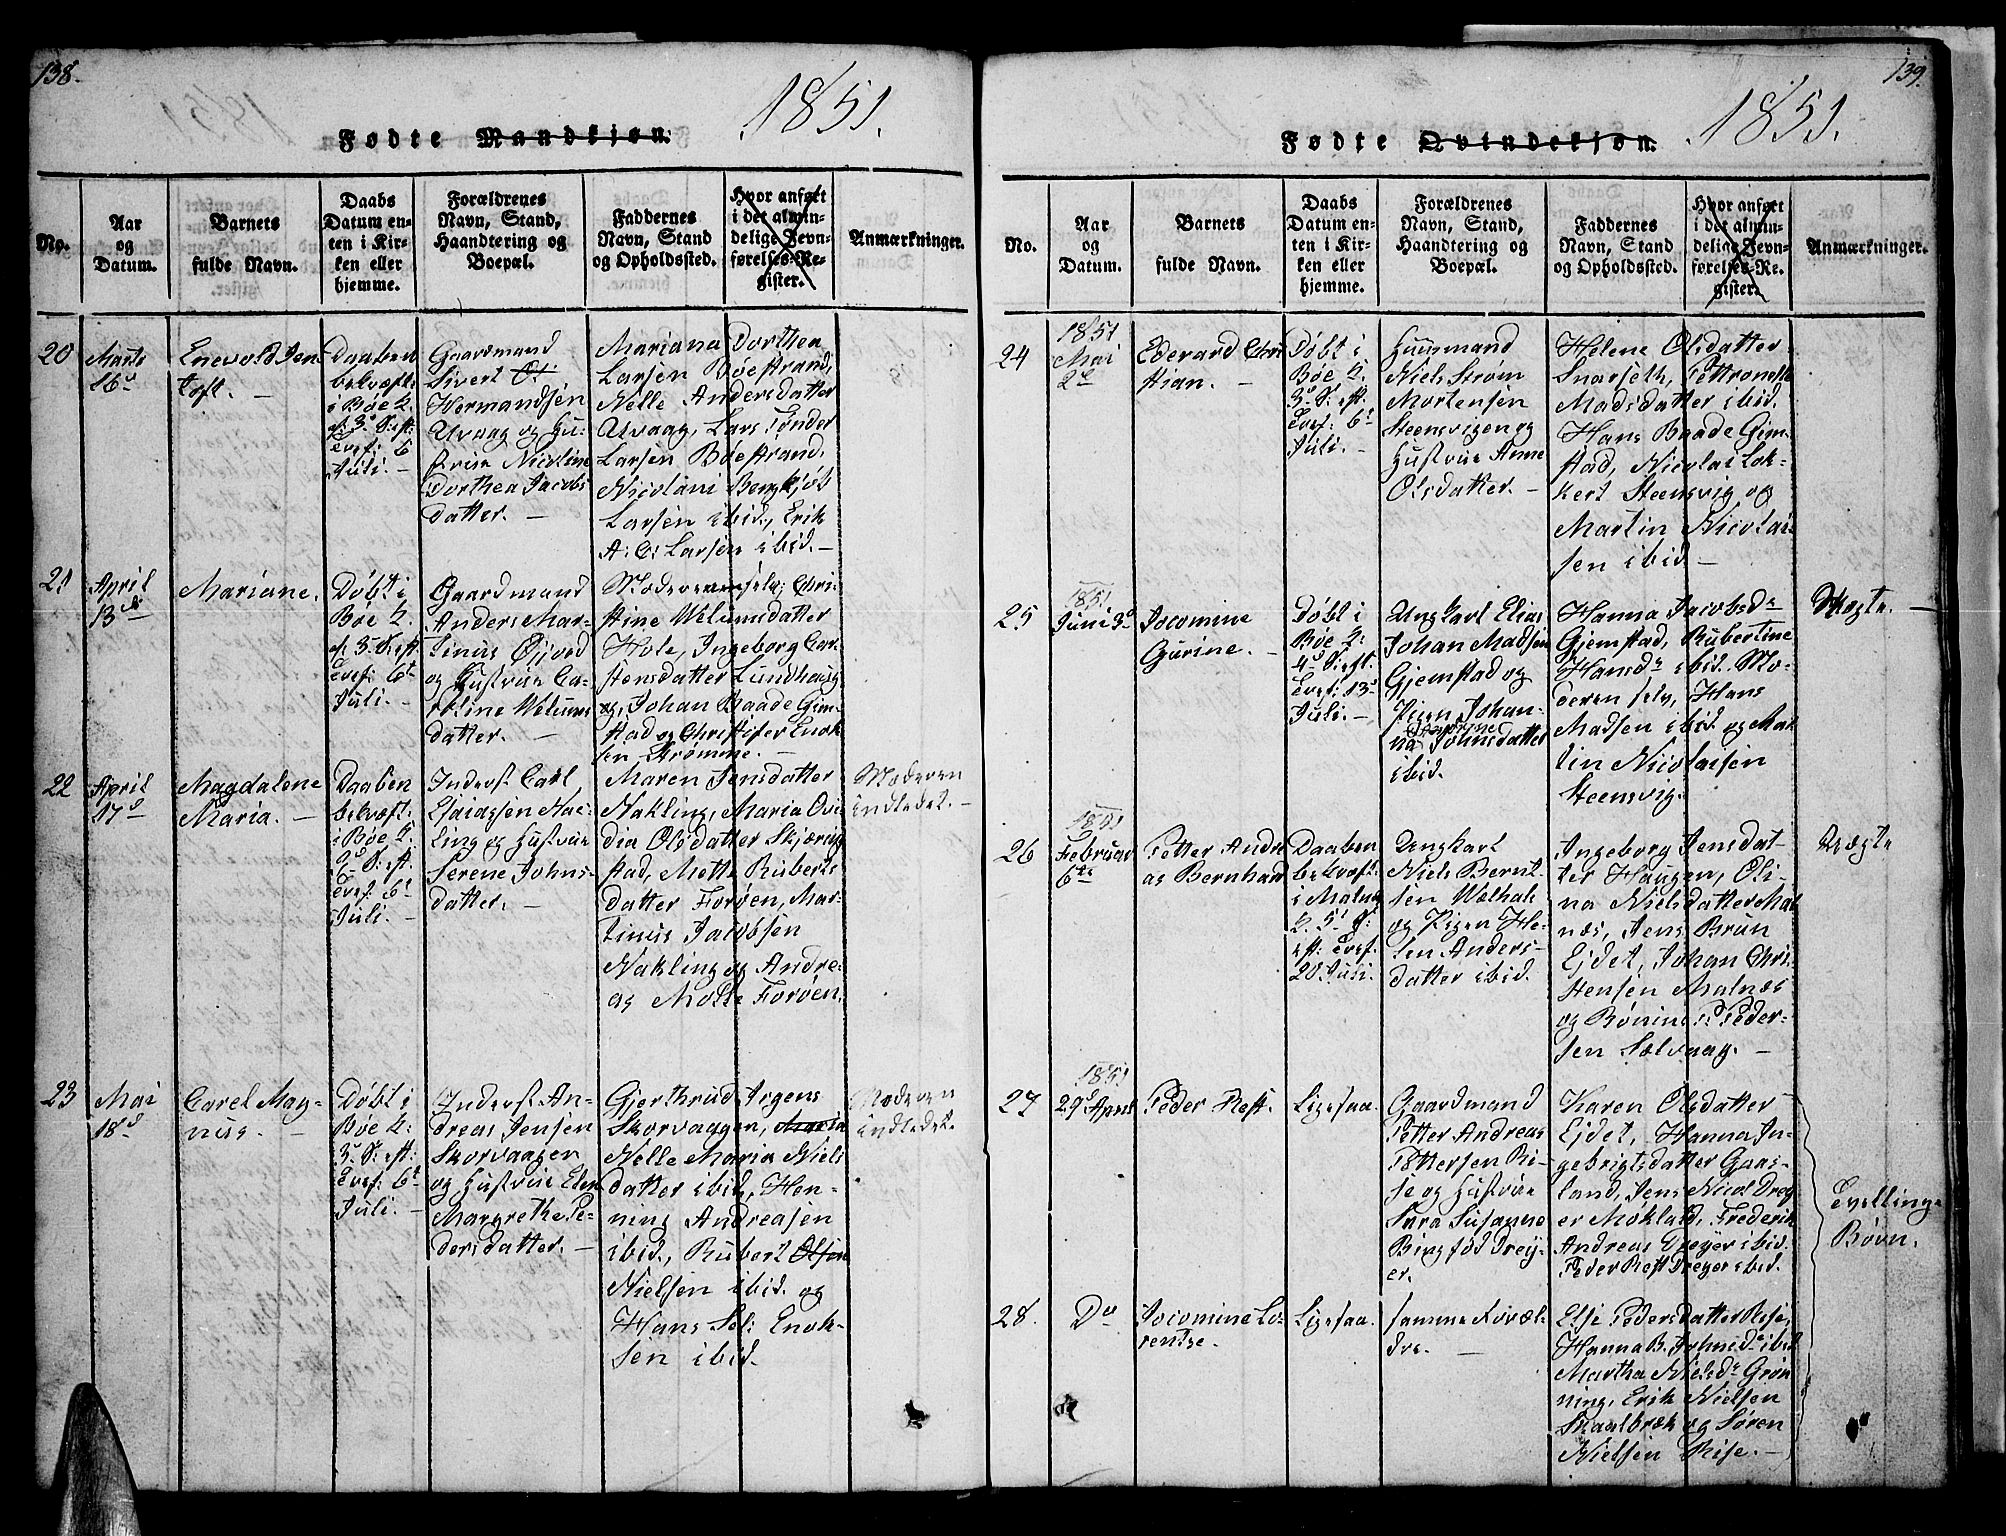 138.
Fødte Mandkjøn. 1851.
No.
Aar
og
Datum.
Barnets
fulde Navn.
Daabs
Datum en-
ten i Kir-
ken eller
hjemme.
Forældrenes
Navn, Stand,
Haandtering og
Boepæl.
Faddernes
Navn, Stand
og Opholdssted.
Hvor anført
i det almin-
delige Jevn-
førelses-Re-
gister.
Anmærkninger.
20
Marts
16d
Enevold Jen-
toft. –
Daaben
bekræft:
i Bøe K.
af: 3d S: eft:
Evef: 6
Juli. –
Gaardmand
Sivert
Hermandsen
Alvaag og Hu-
strue Nicoline
Dorthea Jacobs
datter. –
Mariana Dorthea
Larsen Bøestrand,
Nelle Andersdatter
Alvaag, Lars Tønder
Larsen Bøestrand,
Nicolāni
Larsen ibid, Erik
A: C: Larsen ibid. –
21
April
13de
Mariane.
Døbt i
Bøe K.
af: 3d S: eft
Evef: 6t
Juli. –
Gaardmand
Anders Mar-
tinus
og Hustrue Ca-
roline Velums
datter. –
Moderen selv, Chri-
stine Velumsdatter
Hole, Ingeborg Car-
stensdatter Lundhaug
og Johan Baade Gim-
stad og Christofer Enok-
sen Strømme. –
22
April
17d
Magdalene
Maria. –
Daaben
bekræft:
i Bøe K.
3d S: eft
Evef: 6t
Juli. –
Inderst Carl
Esaiassen Nac-
ling og Hustrue
Serene Johns-
datter. –
Maren Jensdatter
Nakling, Maria Ovi-
dia Olsdatter Skjæring
stad, Mette Ruberts
datter Forøen, Mar-
tinus Jacobsen
Nakling og Andre-
as Molte Forøen.
Moderen
indledet. –
23
Mai
18d
Carel Mag-
nus. –
Døbt i
Bøe K:
3d S: eft:
Evef: 6t
Juli. –
Inderst An-
dreas Jensen
Skorvaagen
og Hustrue Elen
Margrethe Pe-
dersdatter. –
Gjerthrud Jrgens
Skorvaagen, Maria
Nelle Maria Niels
datter ibid, Hen-
ning Andreasen
ibid., Rubert Olsen
Nielsen ibid. og
Hans Sel: Enok-
sen ibid.
Moderen
indledet.
139.
Fødte Qvindekjøn. 1851.
No.
Aar
og
Datum.
Barnets
fulde Navn.
Daabs
Datum en-
ten i Kir-
ken eller
hjemme.
Forældrenes
Navn, Stand,
Haandtering og
Boepæl.
Faddernes
Navn, Stand
og Opholdssted.
Hvor anført
i det almin-
delige Jevn-
førelses-Re-
gister.
Anmærkninger.
24
1851
Mai
2de
Ederard Chri
stian. –
Døbt i
Bøe K.
3d S: eft:
Evef: 6t
Juli. –
Huusmand
Niels Strøm
Mortensen
Steensvigen og
Hustrue Anne
Olsdatter. –
Helene Olsdatter
Snarseth, Pettronelle
Madsdatter ibid.
Hans Baade Gim-
stad, Nicolai Lok-
kert Steensvig og
Martin Nicolai-
sen ibid –
25
1851
Juni 3d
Jocomine
Gurine. –
Døbt i
Bøe K:
4d S: eft.
Evef: 13d
Juli. –
Ungkarl Elias
Johan Madsen
Gjemstad og
Pigen Johan-
na Johnsdatter
ibid.
Hanna Jacobsdr
Gjemstad, Rubertine
Hansdr ibid. Mo-
deren selv, Hans
Madsen ibid og Mar
tin Nicolaisen
Steensvig.
Uægte. –
26
1851
Februar
6te
Petter Andre
as Bernhard
Daaben
bekræft:
i Malnæs
K. 5t S:
eft: Evef:
20 Juli.
Ungkarl
Niels Bernt-
sen Walhal
og Pigen He-
len Anders-
datter ibid.
Ingeborg Jensdat-
ter Haugen, Oli-
na Nielsdatter Mal
næs, Jens Brun
Ejdet, Johan Chri-
stensen Malnæs
og Rønin P: Peder-
sen Sælvaag. –
Uægte
27
1851
29d April
Peder Rest.
Ligesaa.
Gaardmand
Petter Andreas
Pettersen Ri-
se og Hustrue
Sara Susanne
Ringsød Drey-
er.
Karen Olsdatter
Ejdet, Hanna In-
gebrigtsdatter Gaas-
land, Jens Nicol Drey
er Møklad, Frederik
Andreas Dreyer ibid.
Peder Rest Dreyer ibid.
Tvellinge
Børn.
28.
Do
Jocomine Lo-
rentse.
Ligesaa.
samme Foræl-
dre. –
Else Pedersdatter Rise,
Hanna B. Johnsdr ibid
Martha Nielsdr Grøn
ning, Erik Nielsen
Skaalbræk og Søren
Nielsen Rise. –